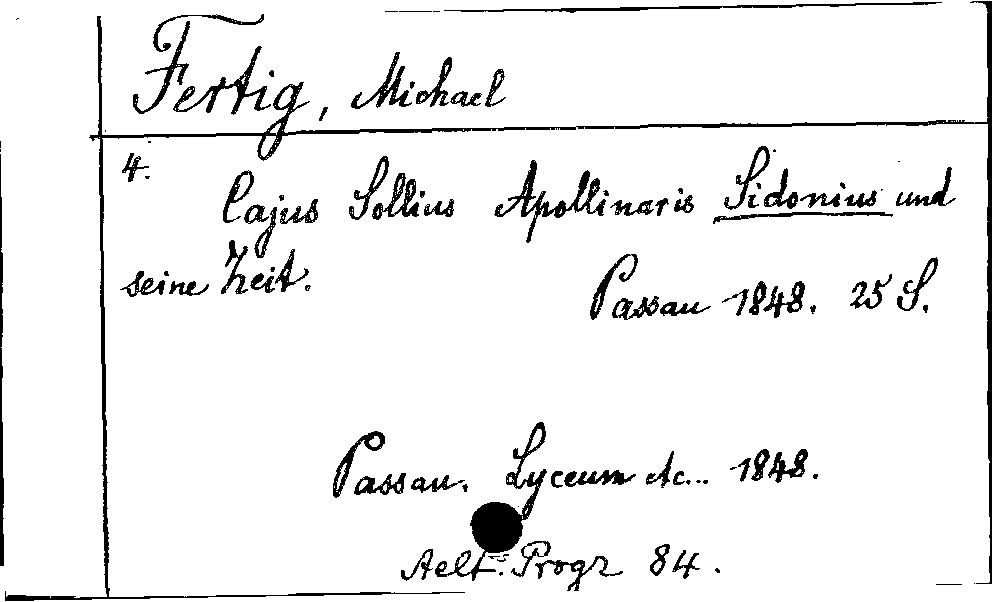 Fertig, Michael
4.
Cajus Sollius Apollinaris Sidonius und
seine Zeit.
Passau 1848. 25 S.
Passau. Lyceum etc... 1848.
Aelt. Progr 84.